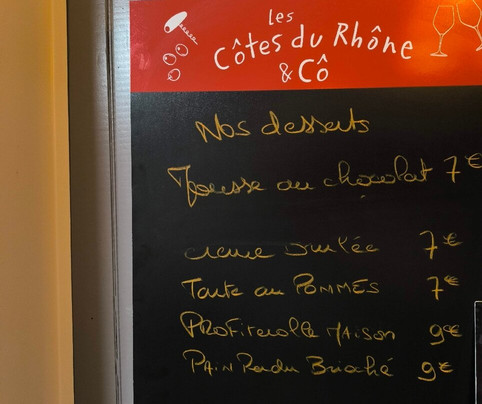 les
Côtes du Rhône
& Cô
Nos desserts
Mousse au chocolat 7€
creme brulée 7€
Tarte au POMMES 7€
PROFiterolle MAison 9€
PAiN Perdu Brioché 9€